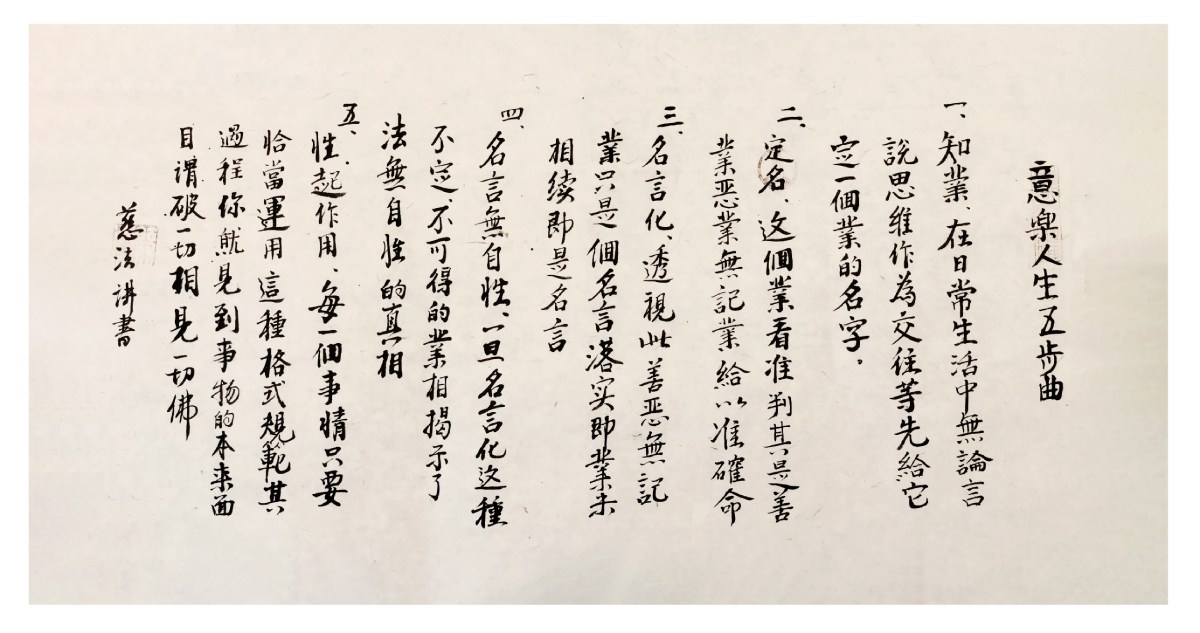 意樂人生五步曲
一、知業、在日常生活中無論言
說思维作為交往等先給它
定一個業的名字。
二、定名、这個業看准判其是善
業惡業無記業給以准確命
三、名言化、透視此善惡無記
業只是個名言落实即業未
相续即是名言
四、名言無自性、一旦名言化这種
不定、不可得的業相揭示了
法無自性的真相
五、性起作用、每一個事情只要
恰當運用這種格式規範其
過程你就見到事物的本来面
目謂破一切相見一切佛
慈法讲書